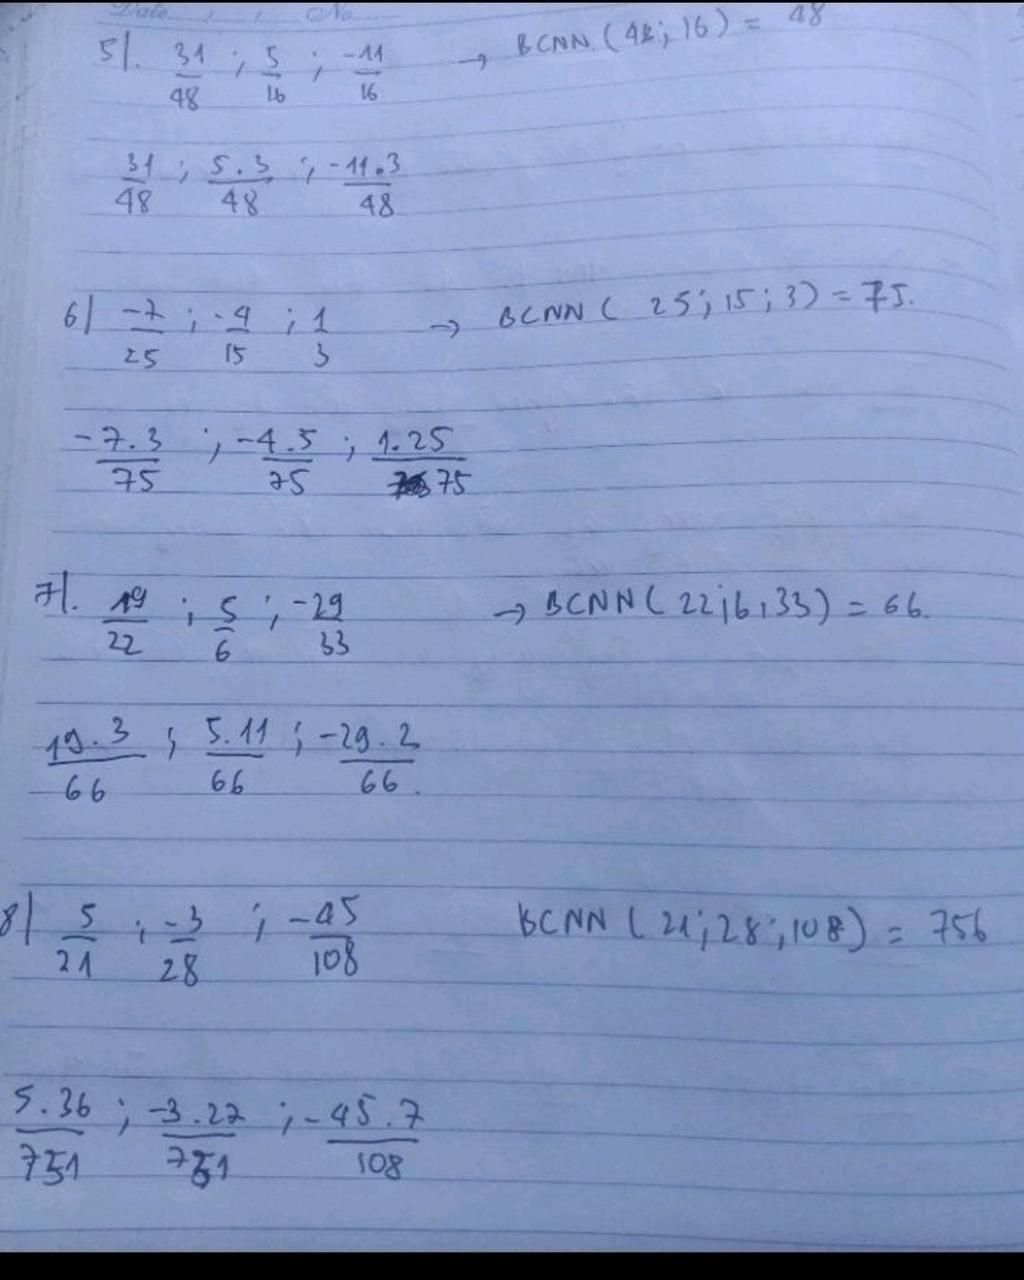 Date No
5/. 31/48 ; 5/16 ; -11/16 → BCNN (48; 16) = 48
31/48 ; 5.3/48 ; -11.3/48
6/ -7/25 ; -4/15 ; 1/3 → BCNN ( 25; 15; 3) = 75.
-7.3/75 ; -4.5/75 ; 1.25/75
7/. 19/22 ; 5/6 ; -29/33 → BCNN ( 22;6;33) = 66.
19.3/66 ; 5.11/66 ; -29.2/66.
8/ 5/21 ; -3/28 ; -45/108 BCNN (21;28;108) = 756
5.36/751 ; -3.27/751 ; -45.7/108